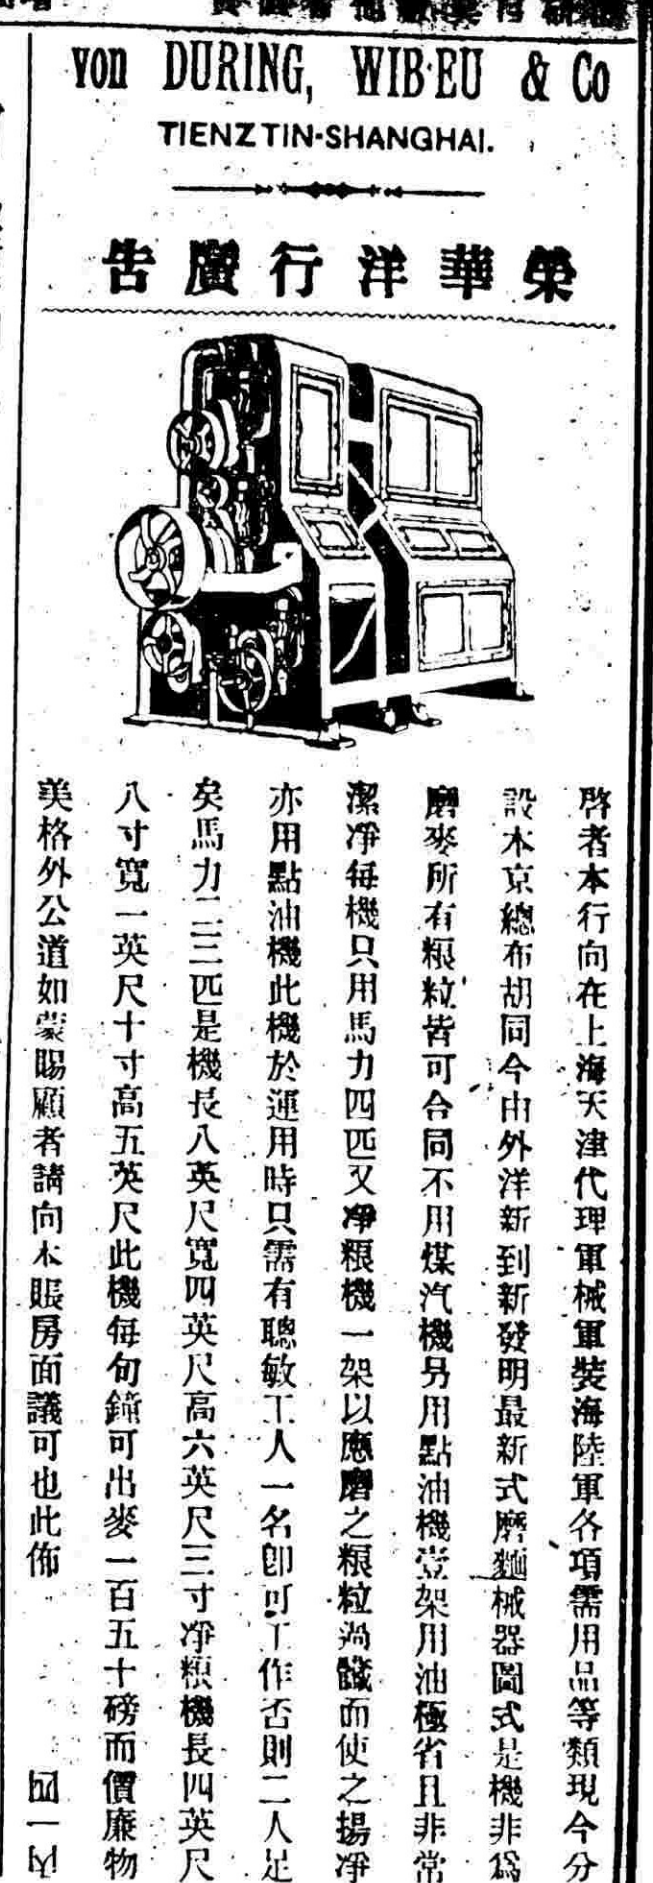 von DURING, WIB·EU & Co
TIENZTIN-SHANGHAI.
榮華洋行廣告
啓者本行向在上海天津代理軍械軍裝海陸軍各項需用品等類現今分
設本京總布胡同今由外洋新到新發明最新式磨麵械器圖式是機非爲
磨麥所有粮粒皆可合同不用煤汽機另用點油機壹架用油極省且非常
潔凈每機只用馬力四匹又凈粮機一架以應磨之粮粒過籮而使之揚凈
亦用點油機此機於運用時只需有聰敏工人一名卽可工作否則二人足
矣馬力二三匹是機長八英尺寬四英尺高六英尺三寸凈粮機長四英尺
八寸寬一英尺十寸高五英尺此機每句鐘可出麥一百五十磅而價廉物
美格外公道如蒙賜顧者請向本賬房面議可也此佈
四一內